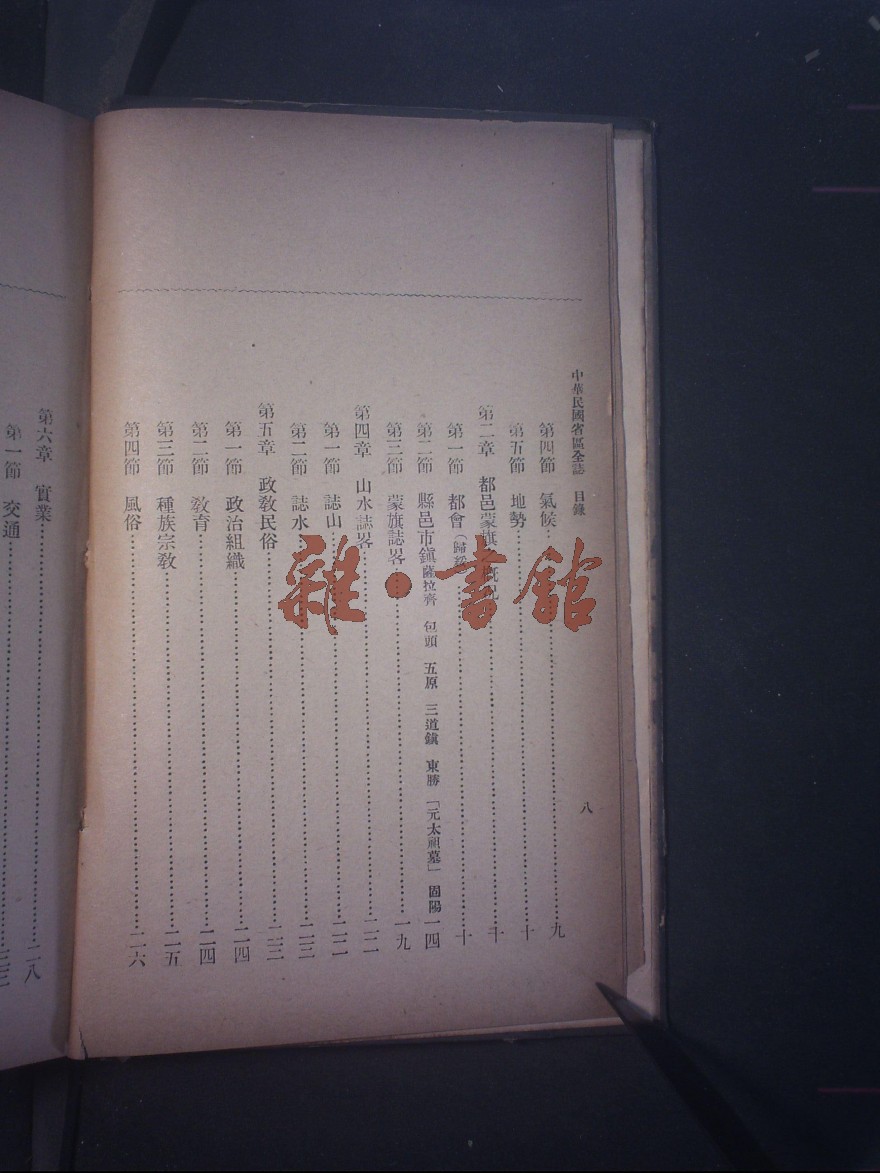 中華民國省區全誌　目錄　八
第四節　氣候⋯⋯九
第五節　地勢⋯⋯十
第二章　都邑蒙旗概況⋯⋯十
第一節　都會（歸綏⋯⋯十
第二節　縣邑市鎮　薩拉齊　包頭　五原　三道鎮　東勝「元太祖墓」固陽　一四
第三節　蒙旗誌畧⋯⋯一九
第四章　山水誌畧⋯⋯二二
第一節　誌山⋯⋯二二
第二節　誌水⋯⋯二三
第五章　政教民俗⋯⋯二三
第一節　政治組織⋯⋯二四
第二節　教育⋯⋯二四
第三節　種族宗教⋯⋯二五
第四節　風俗⋯⋯二六
第六章　實業⋯⋯二八
第一節　交通⋯⋯
雜·書館